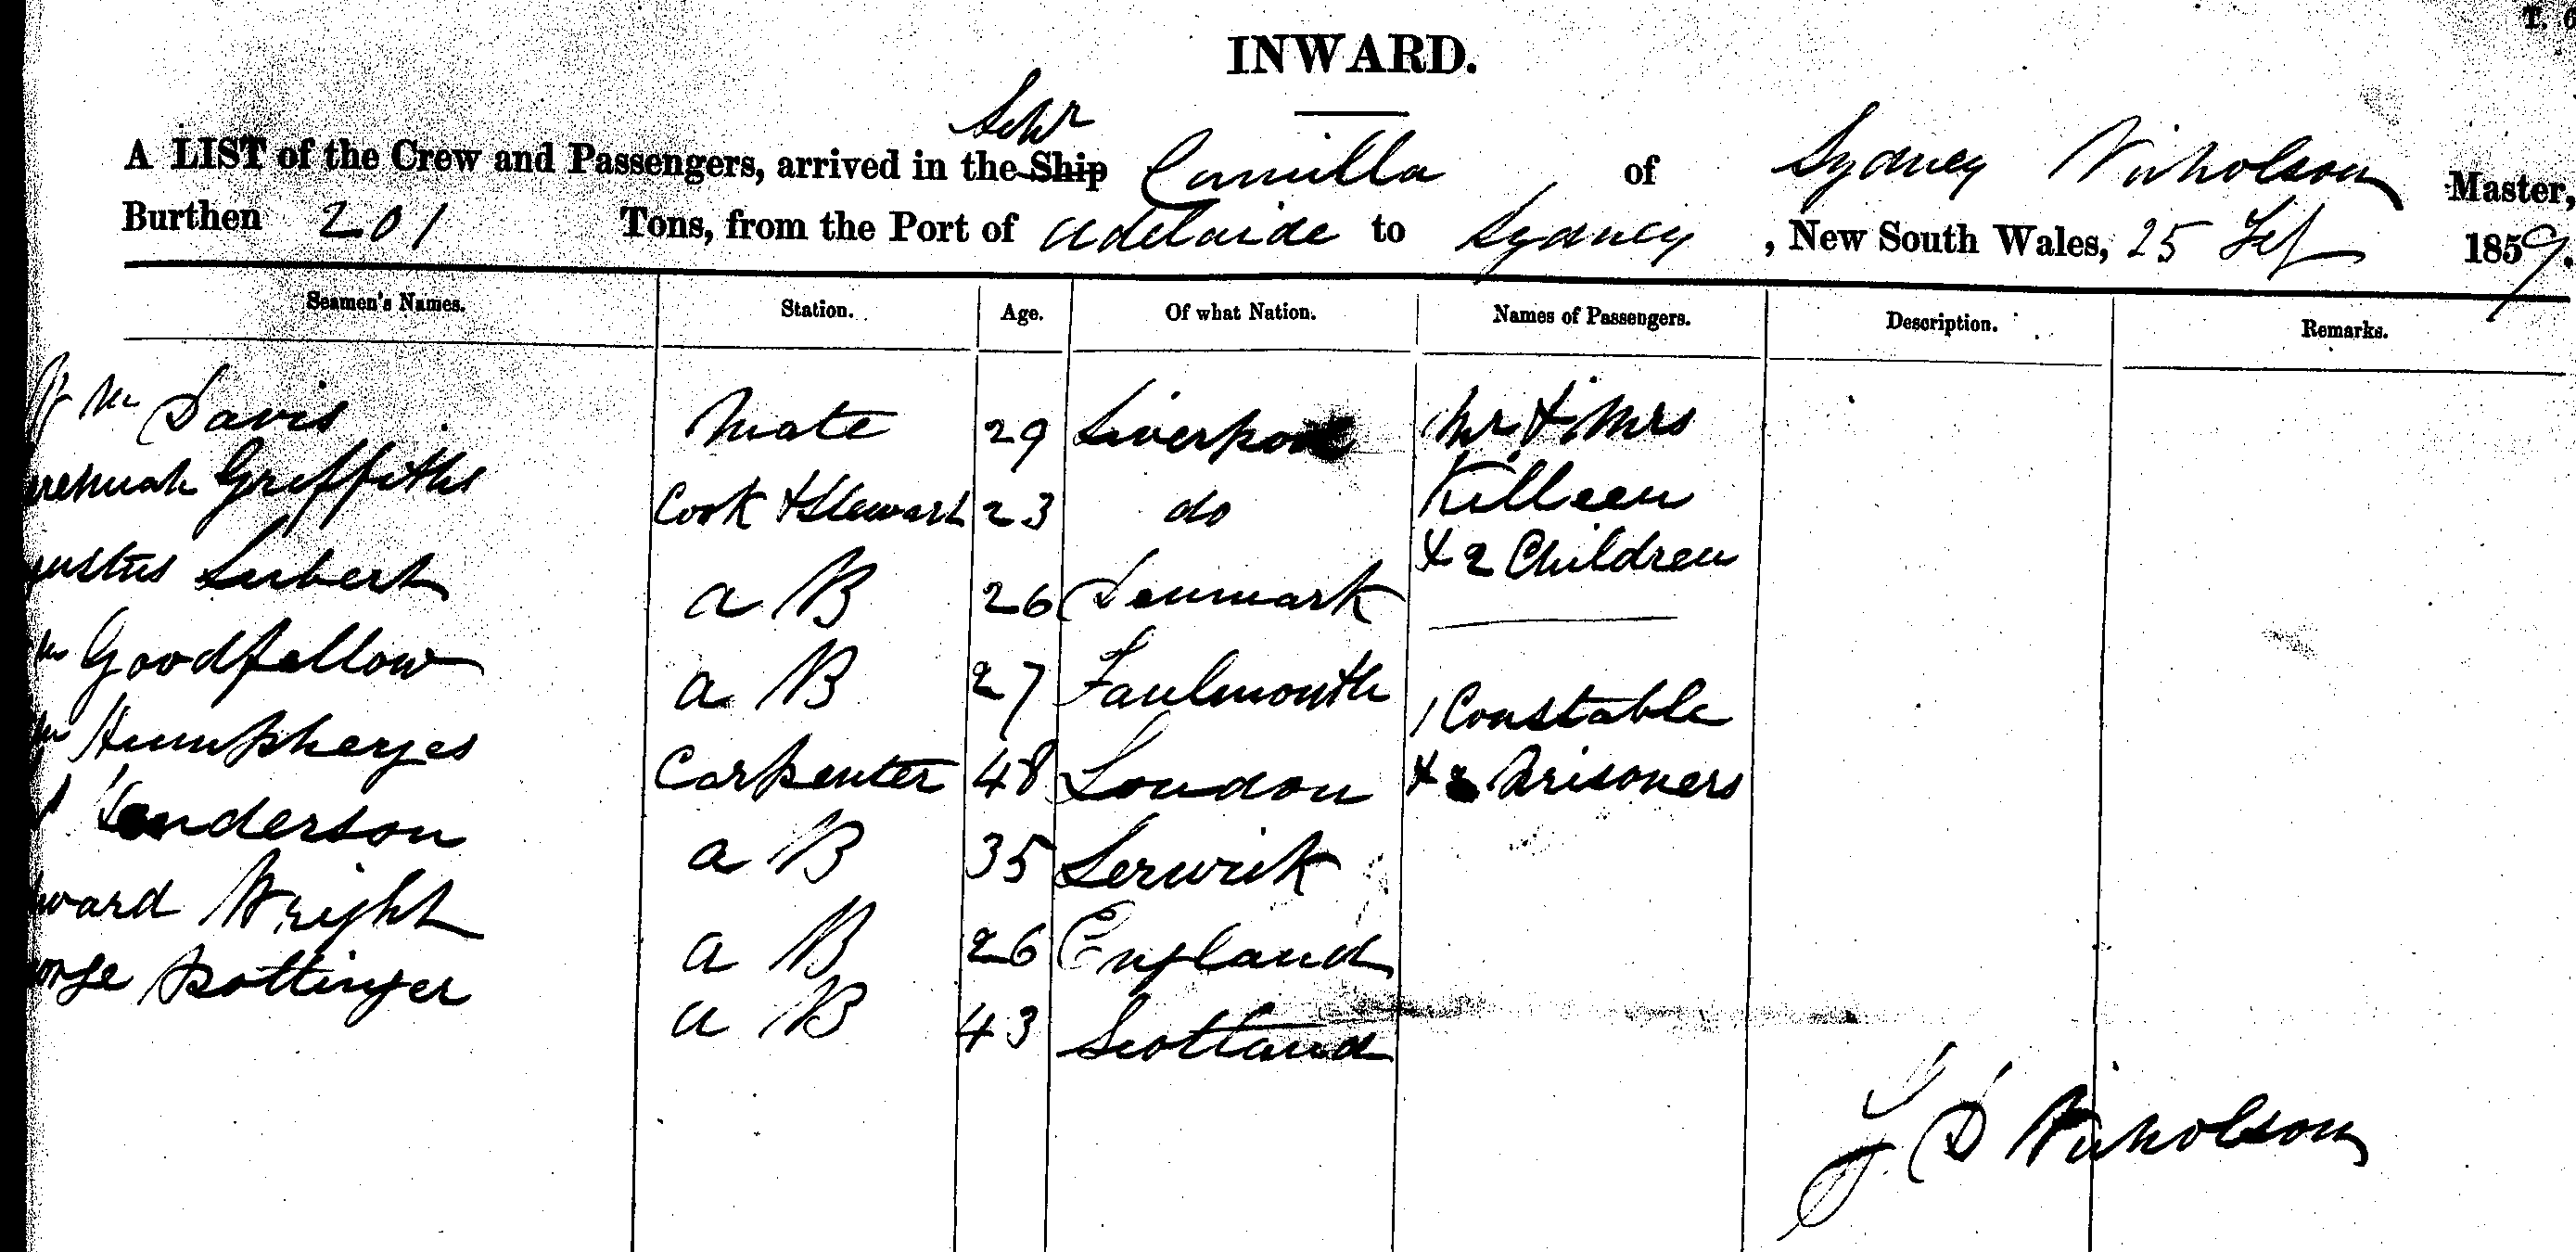 INWARD.
Schr
A LIST of the Crew and Passengers, arrived in the Ship Camilla of Sydney Nicholson Master,
Burthen 201 Tons, from the Port of Adelaide to Sydney, New South Wales, 25 Feb 1859.
Seamen's Names. Station. Age. Of what Nation. Names of Passengers. Description. Remarks.
Wm Davis Mate 29 Liverpool Mr & Mrs
eremiah Griffiths Cook & Steward 23 do Killeen
& 2 Children
gustus Lubert a B 26 Denmark
m Goodfellow a B 27 Faulmouth 1 Constable
m Humpheryes Carpenter 48 London & Prisoners
Henderson a B 35 Lerwick
ward Wright a B 26 England
orge Pottinger a B 43 Scotland
Nicholson